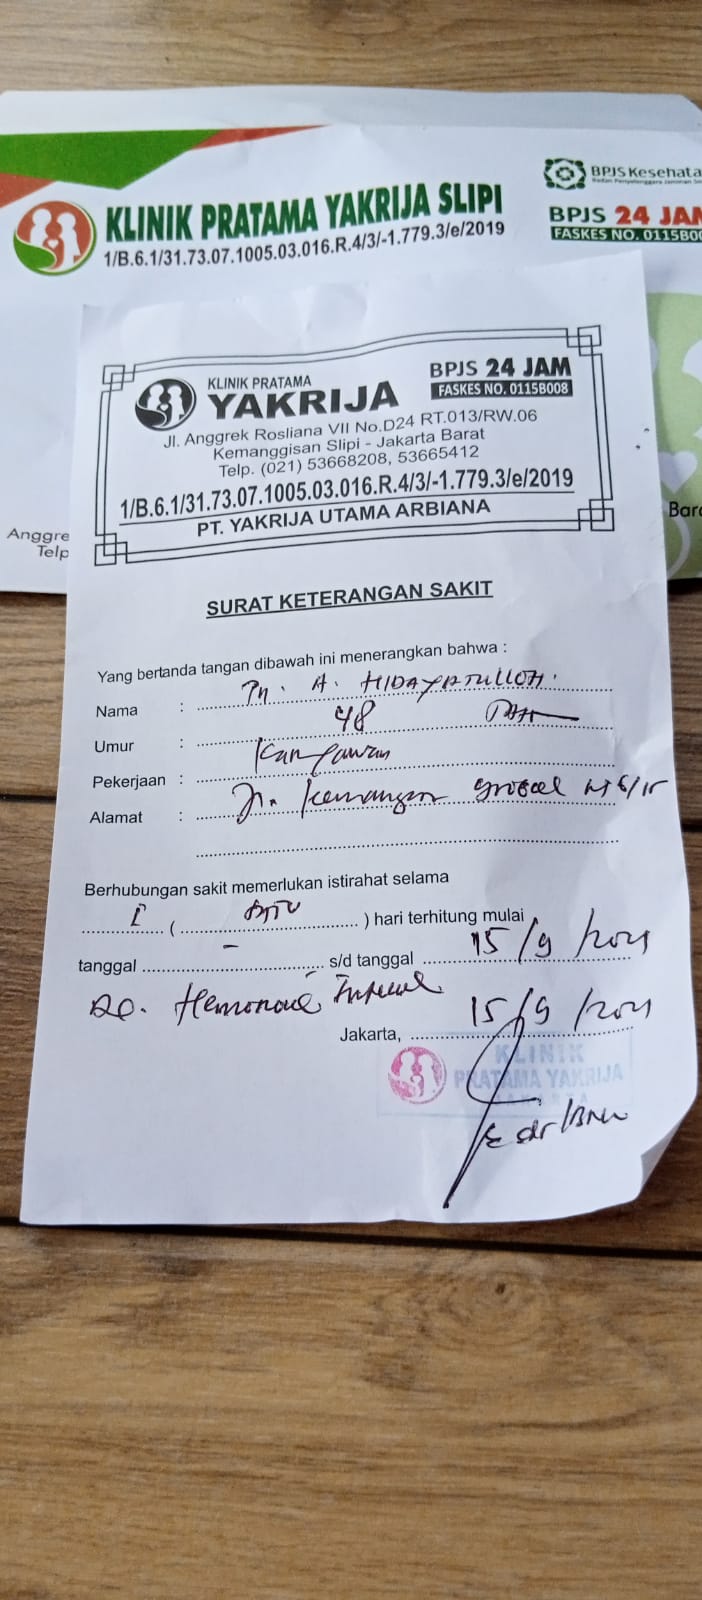 BPJS Kesehata
KLINIK PRATAMA YAKRIJA SLIPI
1/B.6.1/31.73.07.1005.03.016.R.4/3/-1.779.3/e/2019
BPJS 24 JAM
FASKES NO. 0115B00
KLINIK PRATAMA
YAKRIJA
BPJS 24 JAM
FASKES NO. 0115B008
Jl. Anggrek Rosliana VII No.D24 RT.013/RW.06
Kemanggisan Slipi - Jakarta Barat
Telp. (021) 53668208, 53665412
1/B.6.1/31.73.07.1005.03.016.R.4/3/-1.779.3/e/2019
PT. YAKRIJA UTAMA ARBIANA
Anggre
Telp
Bar
SURAT KETERANGAN SAKIT
Yang bertanda tangan dibawah ini menerangkan bahwa :
Nama : Tn. A. HIDAYATULLOH.
Umur : 48
Pekerjaan : Karyawan
Alamat : Jl. Kemangan
Berhubungan sakit memerlukan istirahat selama
I ( ) hari terhitung mulai
tanggal - s/d tanggal 15/9
Jakarta, 15/9
KLINIK
PRATAMA YAKRIJA